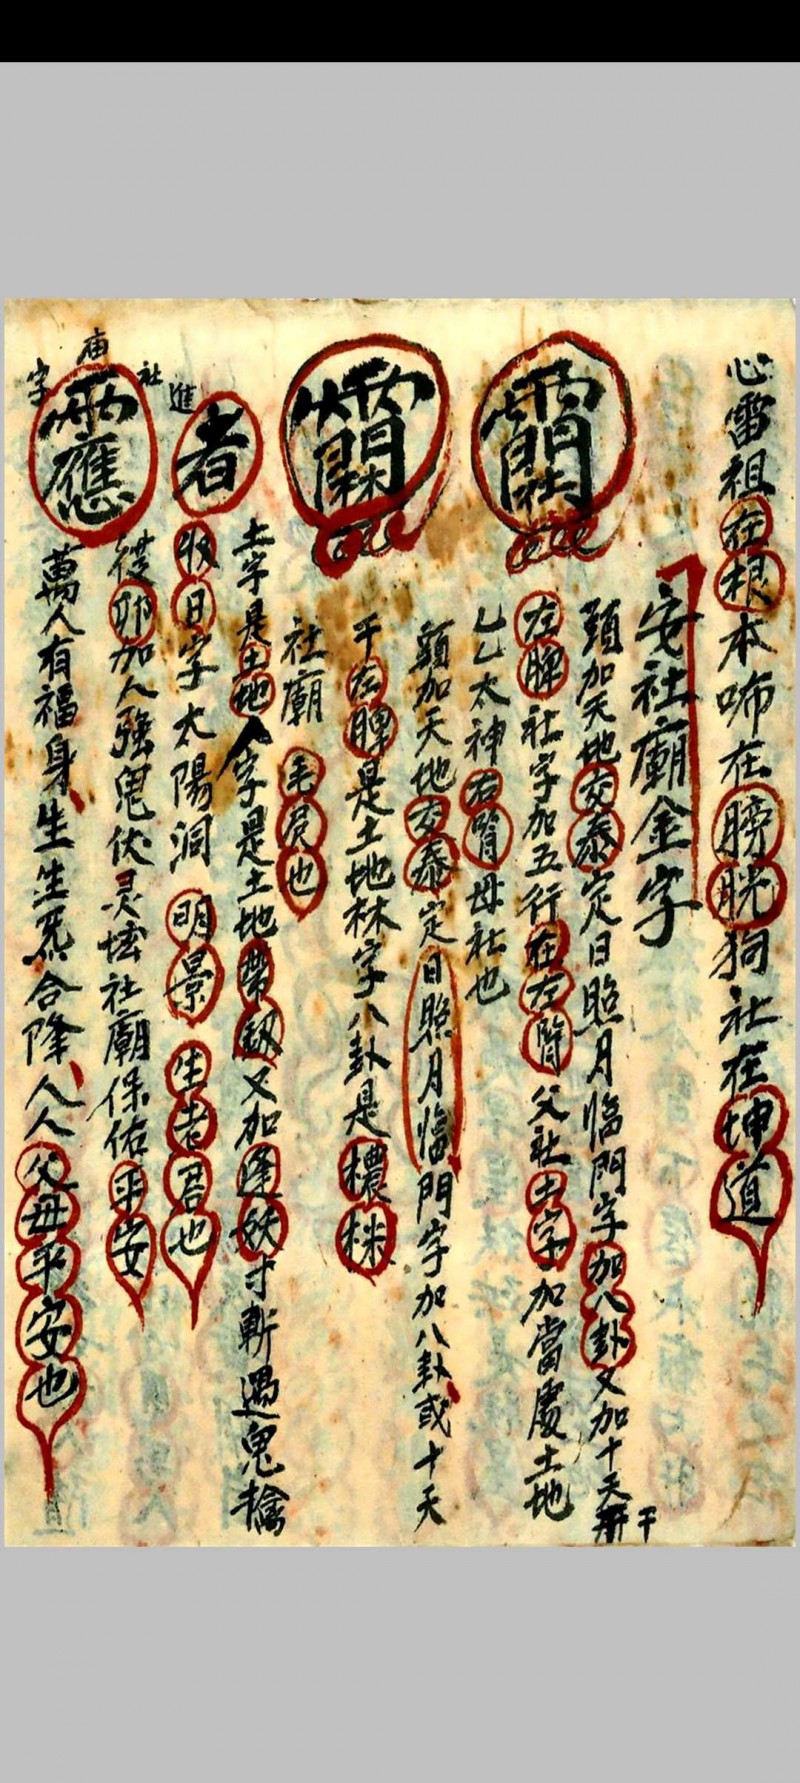 心雷祖在根本㖊在膀胱狗社在坤道
安社廟金字
頭加天地交泰定日照月临門字加八卦又加十天
干
左脾社字加五行在左腎父社土字加當處土地
乙乙太神右腎母社也
頭加天地交泰定日照月临門字加八卦或十天
干左脾是土地林字八卦是檂株
社廟 毛屍也
土字是土地人字是土地帶劔又加逢妖寸斬遇鬼擒
者
進
收日字太陽洞 明景 生老君也
社
從耶加人強鬼伏灵坛社廟保佑平安
庙
字
萬人有福身生生炁合降人人父母平安也